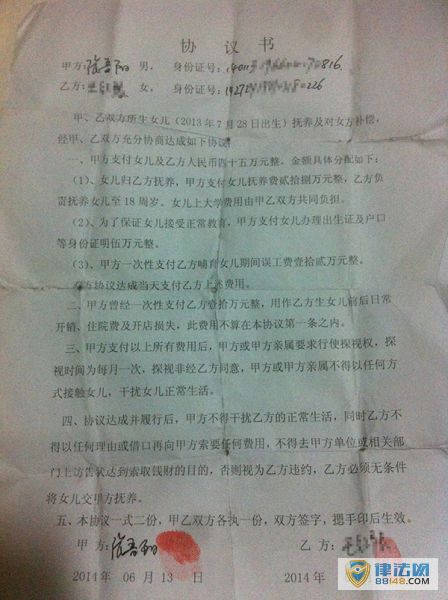 协 议 书
甲方: 男， 身份证号:
乙方: 女， 身份证号: 226
甲、乙双方所生女儿（2013年7月28日出生）抚养及对女方补偿，
经甲、乙双方充分协商达成如下协议：
一、甲方支付女儿及乙方人民币四十五万元整。金额具体分配如下：
（1）、女儿归乙方抚养，甲方支付女儿抚养费贰拾捌万元整，乙方负
责抚养女儿至18周岁。女儿上大学费用由甲乙双方共同负担。
（2）、为了保证女儿接受正常教育，甲方支付女儿办理出生证及户口
等身份证明伍万元整。
（3）、甲方一次性支付乙方哺育女儿期间误工费壹拾贰万元整。
协议达成当天支付乙方上述费用。
二、甲方曾经一次性支付乙方壹拾万元整，用作乙方生女儿前后日常
开销、住院费及开店损失，此费用不算在本协议第一条之内。
三、甲方支付以上所有费用后，甲方或甲方亲属要求行使探视权，探
视时间为每月一次，探视非经乙方同意，甲方或甲方亲属不得以任何方
式接触女儿，干扰女儿正常生活。
四、协议达成并履行后，甲方不得干扰乙方的正常生活，同时乙方不
得以任何理由或借口再向甲方索要任何费用，不得去甲方单位或相关部
门上访告状达到索取钱财的目的，否则视为乙方违约，乙方必须无条件
将女儿交甲方抚养。
五、本协议一式二份，甲乙双方各执一份，双方签字，摁手印后生效。
甲 方: 乙 方:
2014 年 06 月 13 日 2014 年
律法网
88148.com